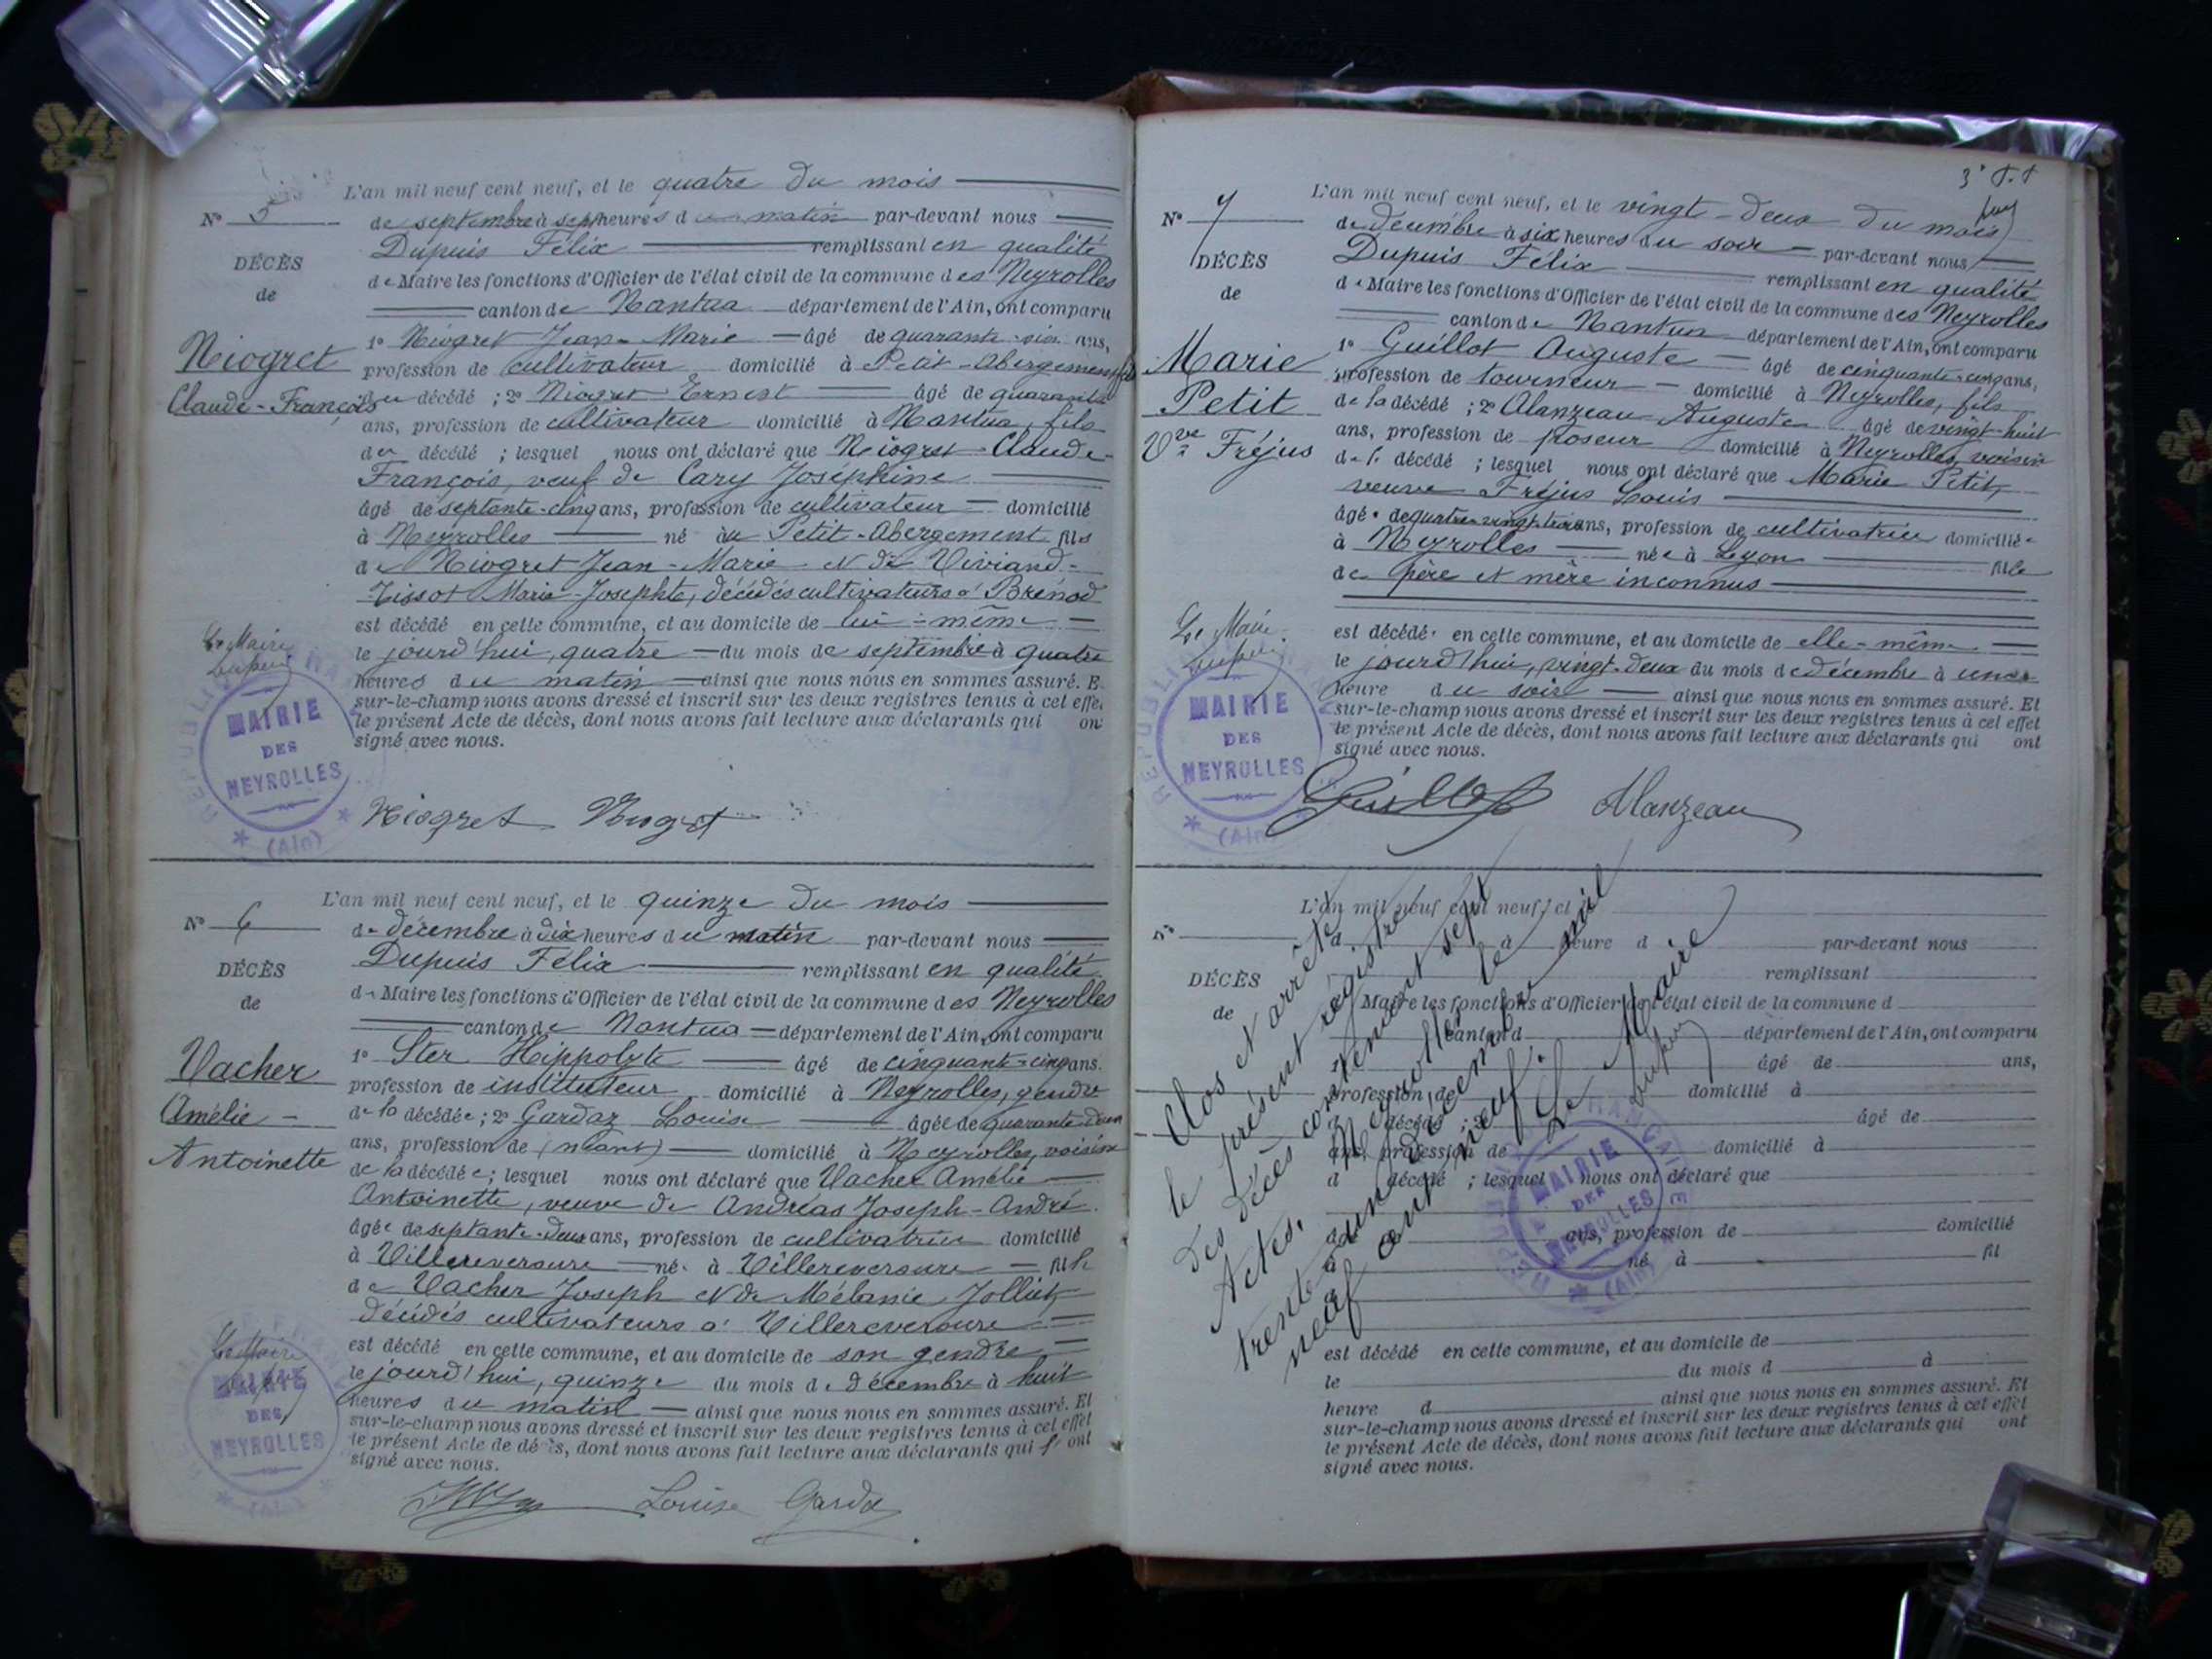 L'an mil neuf cent neuf, et le quatre du mois
N° 5
de septembre à sept heures du matin par-devant nous
Dupuis Félix remplissant en qualité
DÉCÈS
de Maire les fonctions d'Officier de l'état civil de la commune des Neyrolles
de
canton de Nantua département de l'Ain, ont comparu
1° Niogret Jean-Marie âgé de quarante-six ans,
Niogret
profession de cultivateur domicilié à Petit-Abergement
Claude-François
décédé ; 2° Niogret Ernest âgé de quarante
ans, profession de cultivateur domicilié à Nantua, fils
du décédé ; lesquel nous ont déclaré que Niogret Claude-
François, veuf de Cary Joséphine
âgé de septante-cinq ans, profession de cultivateur domicilié
à Neyrolles né au Petit-Abergement fils
de Niogret Jean-Marie et de Viviand-
Tissot Marie-Josephte, décédés cultivateurs à Brénod
est décédé en cette commune, et au domicile de lui-même
Le Maire
Dupuis
le jourd'hui, quatre du mois de septembre à quatre
heures du matin ainsi que nous nous en sommes assuré. E
sur-le-champ nous avons dressé et inscrit sur les deux registres tenus à cet effe
le présent Acte de décès, dont nous avons fait lecture aux déclarants qui on
signé avec nous.
MAIRIE
DES
NEYROLLES
(Ain)
Niogret Niogret
L'an mil neuf cent neuf, et le quinze du mois
N° 6
de décembre à dix heures du matin par-devant nous
Dupuis Félix remplissant en qualité
DÉCÈS
de Maire les fonctions d'Officier de l'état civil de la commune des Neyrolles
de
canton de Nantua département de l'Ain, ont comparu
1° Ster Hippolyte âgé de cinquante-cinq ans.
Vacher
profession de instituteur domicilié à Neyrolles, gendre
Amélie-
de la décédée ; 2° Gardaz Louise âgée de quarante-deux
Antoinette
ans, profession de (néant) domicilié à Neyrolles, voisine
de la décédée ; lesquel nous ont déclaré que Vacher Amélie
Antoinette, veuve de Andréas Joseph-André
âgée de septante-deux ans, profession de cultivatrice domicilié
à Villereversure née à Villereversure fille
de Vacher Joseph et de Mélanie Jolliet
décédés cultivateurs à Villereversure
est décédé en cette commune, et au domicile de son gendre
Le Maire
le jourd'hui, quinze du mois de décembre à huit
heures du matin ainsi que nous nous en sommes assuré. Et
sur-le-champ nous avons dressé et inscrit sur les deux registres tenus à cet effet
le présent Acte de décès, dont nous avons fait lecture aux déclarants qui ont
signé avec nous.
MAIRIE
DES
NEYROLLES
Louise Gardaz
L'an mil neuf cent neuf, et le vingt-deux du mois
N° 7
de décembre à six heures du soir par-devant nous
Dupuis Félix remplissant en qualité
DÉCÈS
de Maire les fonctions d'Officier de l'état civil de la commune des Neyrolles
de
canton de Nantua département de l'Ain, ont comparu
Marie
1° Guillot Auguste âgé de cinquante-cinq ans,
profession de tourneur domicilié à Neyrolles, fils
Petit
de la décédé ; 2° Alanzeau Auguste âgé de vingt-huit
Vve Fréjus
ans, profession de poseur domicilié à Neyrolles, voisin
de la décédé ; lesquel nous ont déclaré que Marie Petit,
veuve Fréjus Louis
âgée de quatre-vingt-trois ans, profession de cultivatrice domiciliée
à Neyrolles née à Lyon fille
de père et mère inconnus
Le Maire
Dupuis
est décédée en cette commune, et au domicile de elle-même
le jourd'hui, vingt-deux du mois de décembre à une
heure du soir ainsi que nous nous en sommes assuré. Et
sur-le-champ nous avons dressé et inscrit sur les deux registres tenus à cet effet
le présent Acte de décès, dont nous avons fait lecture aux déclarants qui ont
signé avec nous.
MAIRIE
DES
NEYROLLES
(Ain)
Guillot Alanzeau
L'an mil neuf cent neuf, et
N°
d à heure d par-devant nous
remplissant
DÉCÈS
Maire les fonctions d'Officier de l'état civil de la commune d
de
canton d département de l'Ain, ont comparu
âgé de ans,
profession de domicilié à
d décédé ; 2° âgé de
ans, profession de domicilié à
d décédé ; lesquel nous ont déclaré que
ans, profession de domicilié
à né à fil
est décédé en cette commune, et au domicile de
le du mois d à
heure d ainsi que nous nous en sommes assuré. Et
sur-le-champ nous avons dressé et inscrit sur les deux registres tenus à cet effet
le présent Acte de décès, dont nous avons fait lecture aux déclarants qui ont
signé avec nous.
Clos et arrêté
le présent régistre
des décès contenant sept
Actes. Neyrolles le
trente-un décembre mil
neuf cent neuf.
Le Maire
Dupuis
MAIRIE
DES
NEYROLLES
(Ain)